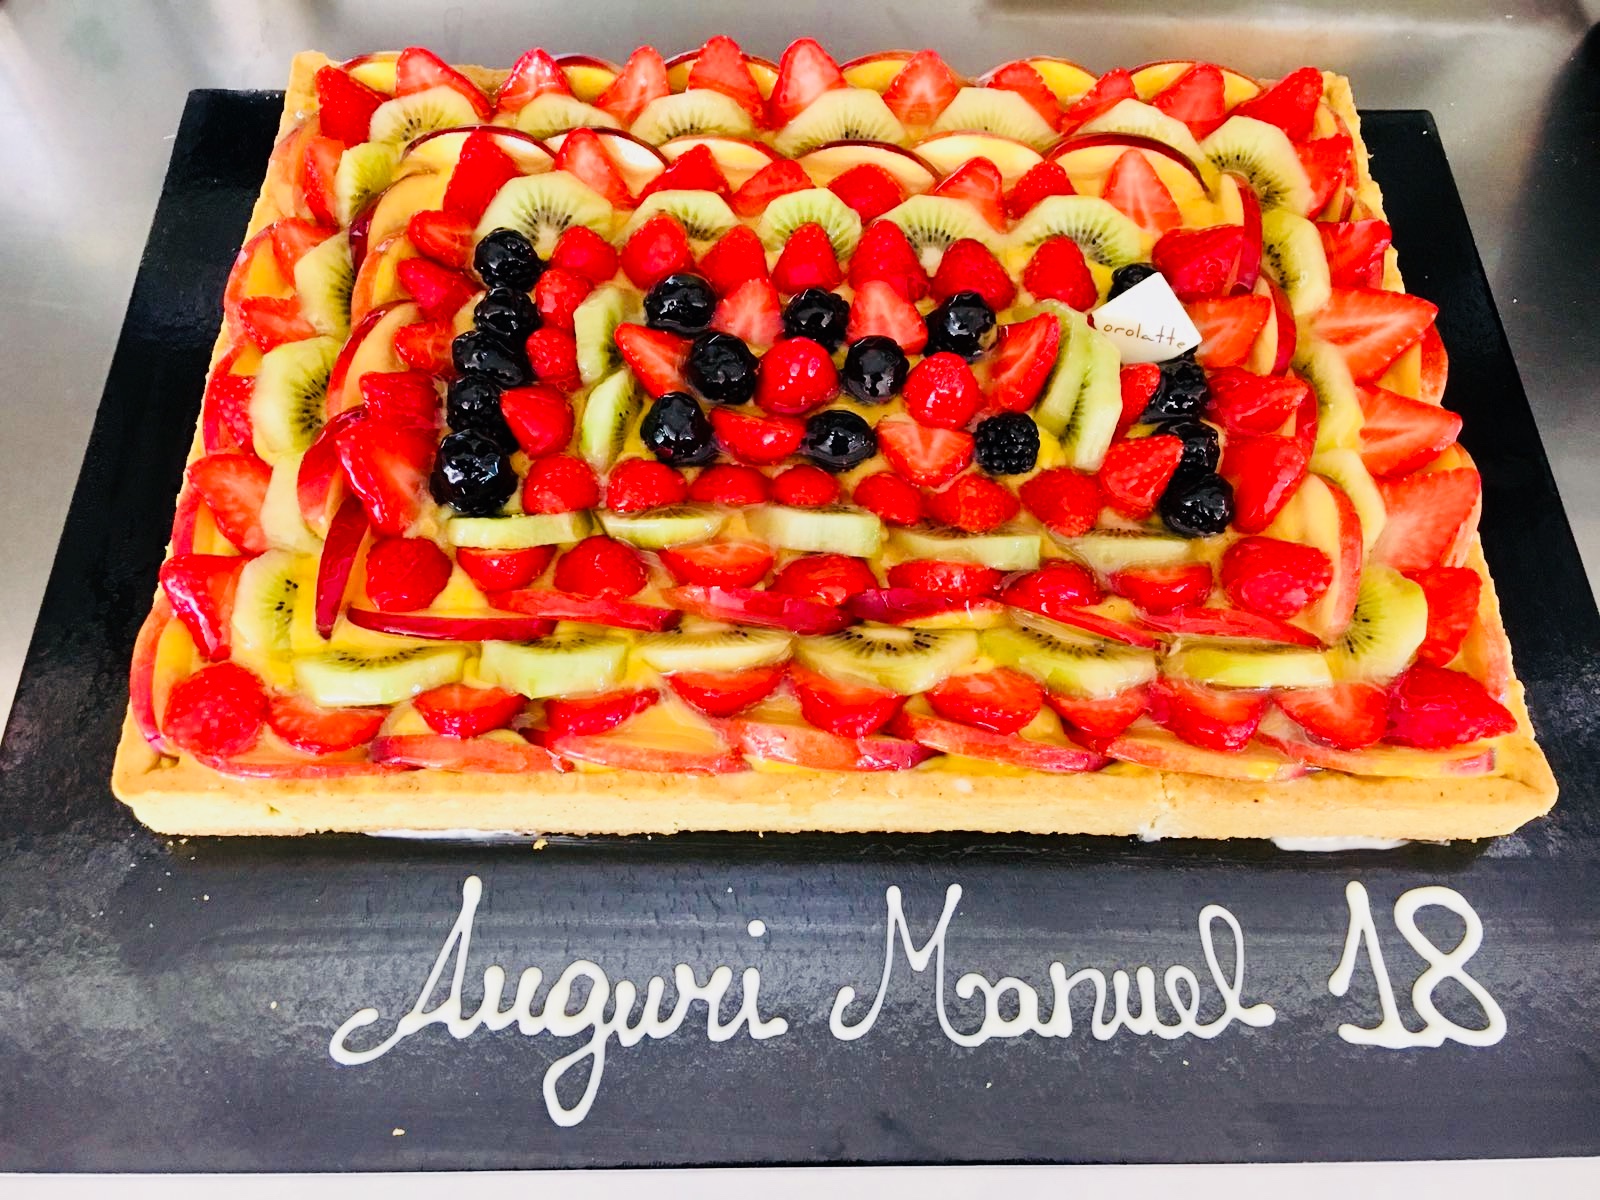 orolatte
Auguri Manuel 18